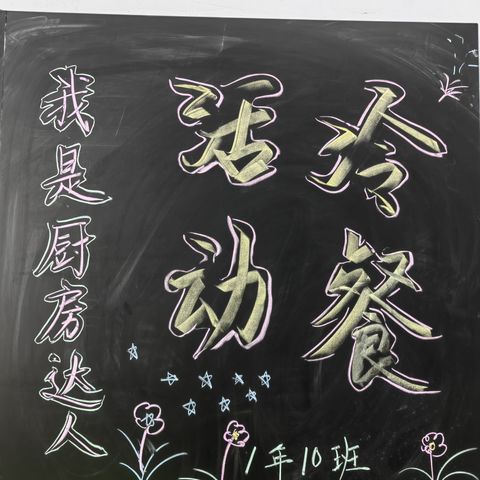 冷餐
活动
我是厨房达人
1年10班